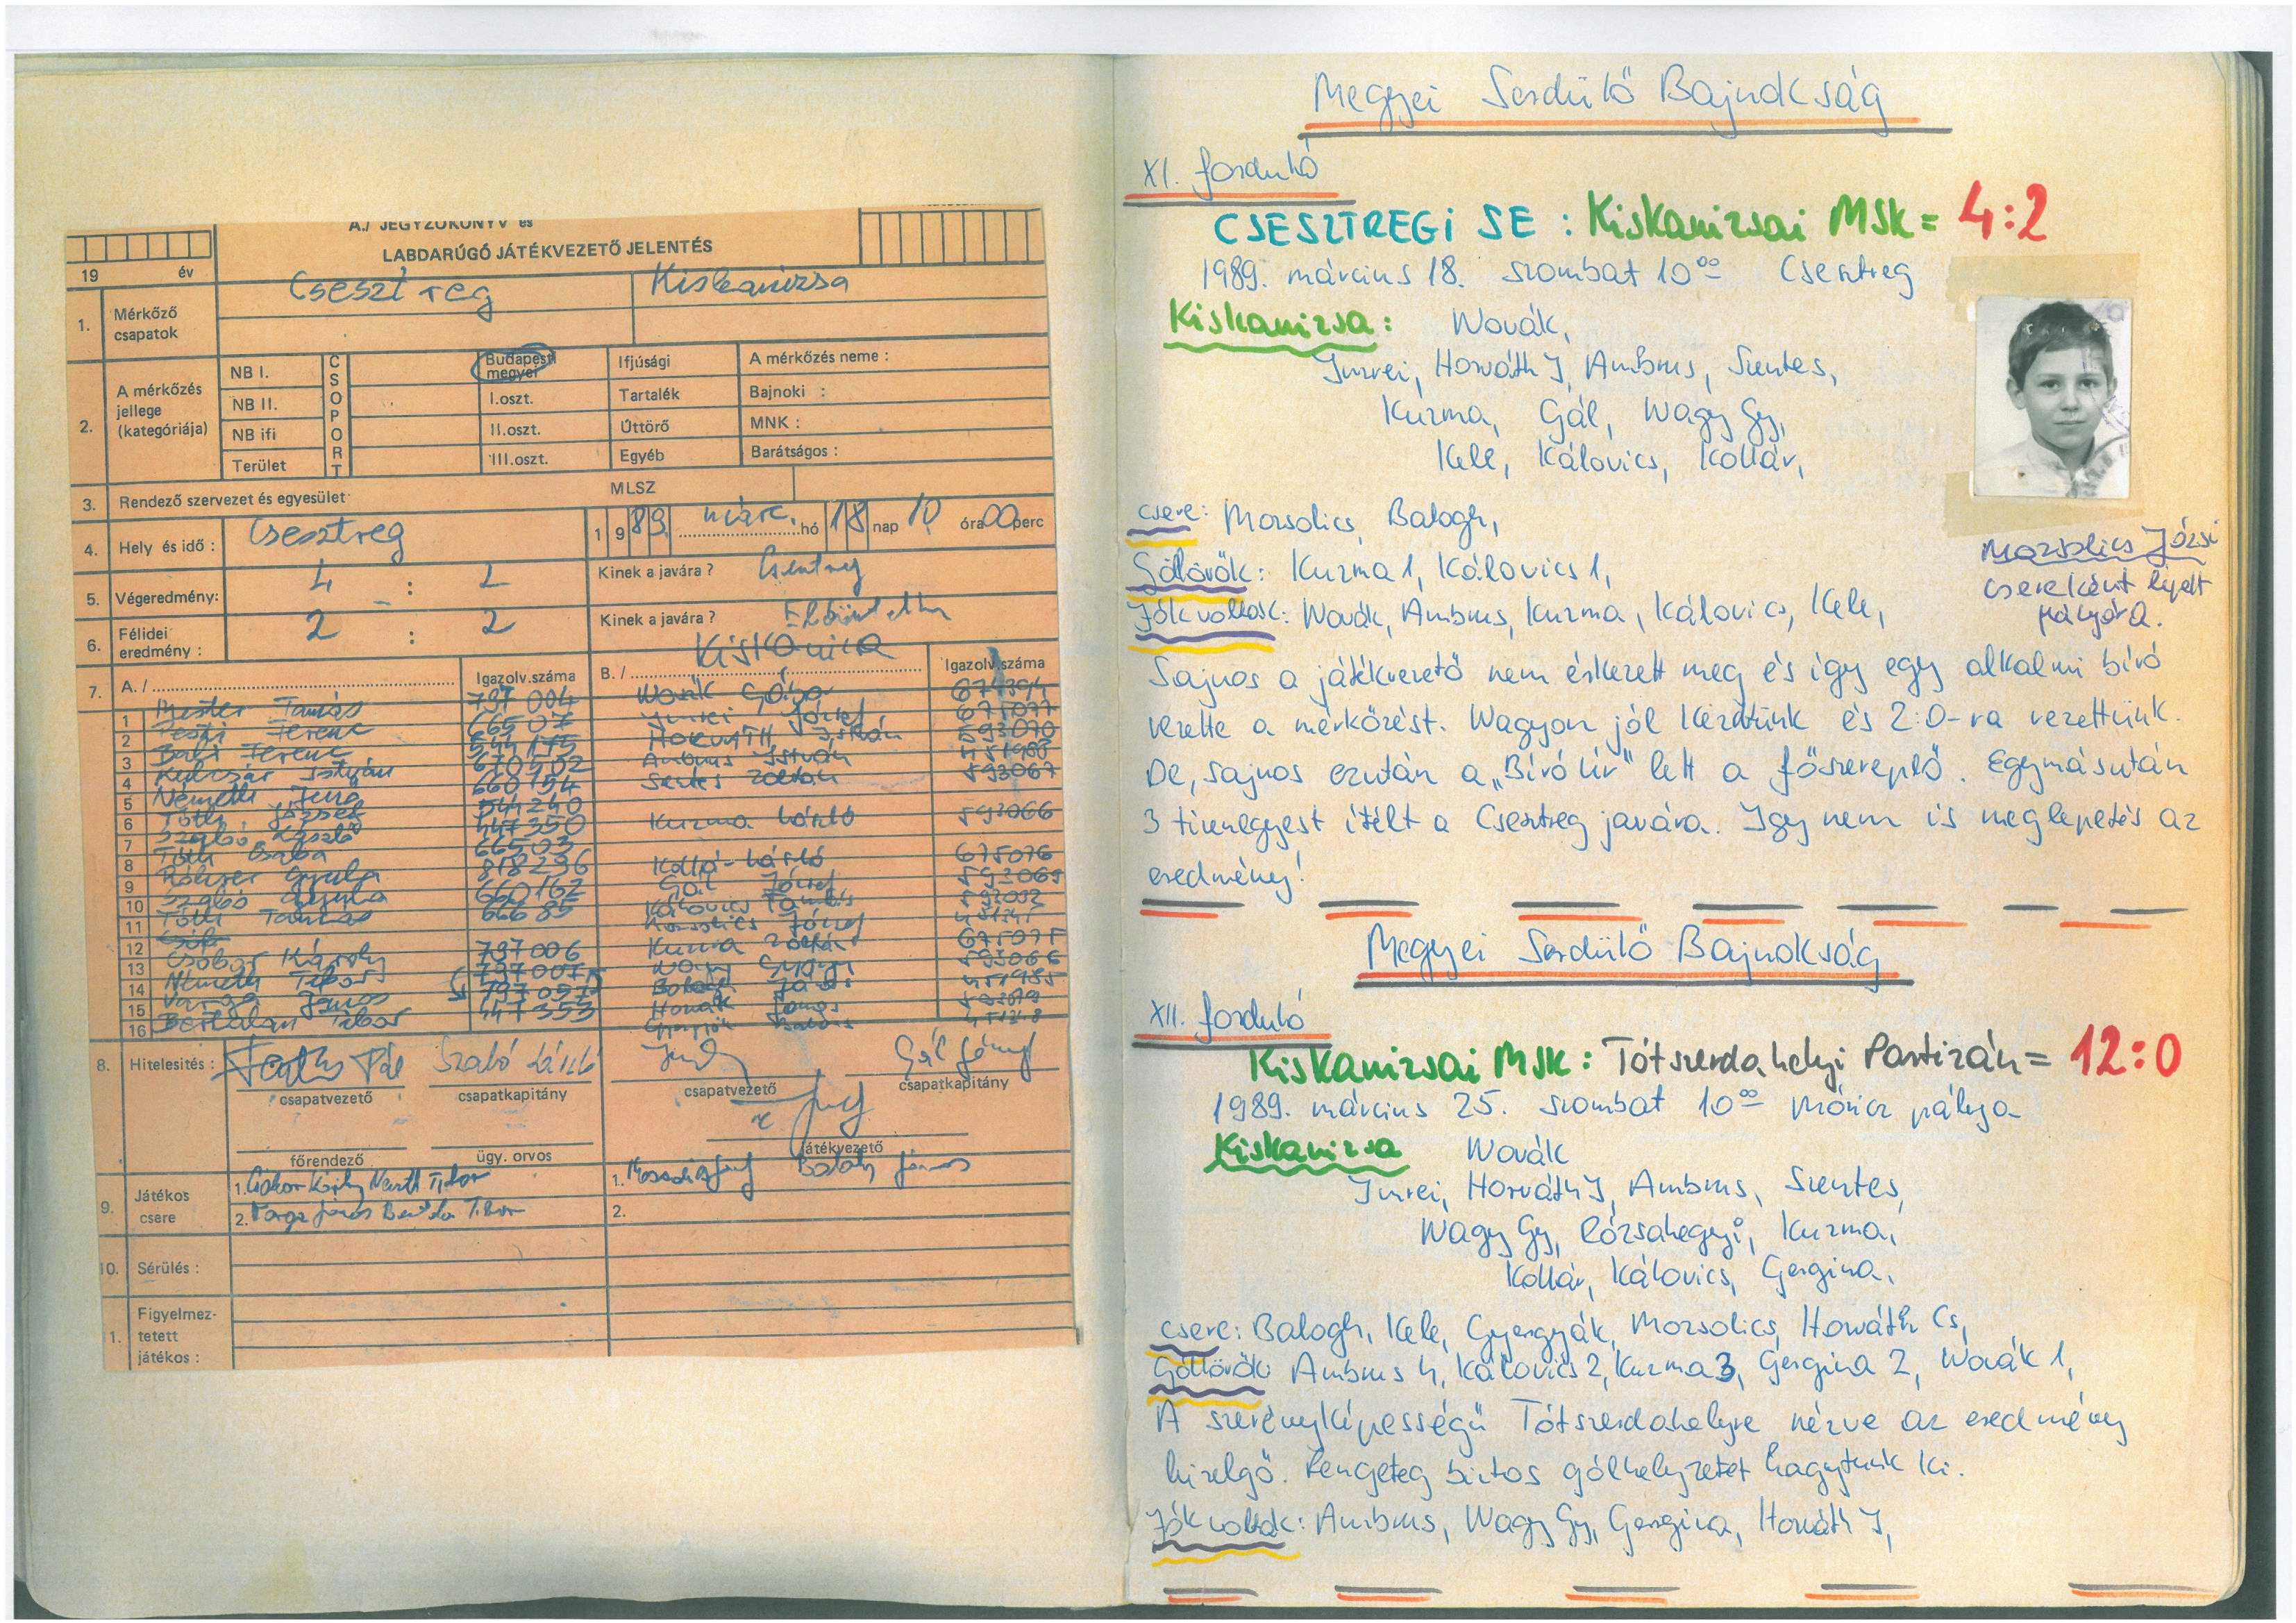 A./ JEGYZŐKÖNYV és
LABDARÚGÓ JÁTÉKVEZETŐ JELENTÉS
19 év
1. Mérkőző csapatok
Csesztreg Kiskanizsa
2. A mérkőzés jellege (kategóriája)
CSOPORT
NB I. Budapest megyei Ifjúsági A mérkőzés neme :
NB II. I.oszt. Tartalék Bajnoki :
NB ifi II.oszt. Úttörő MNK :
Terület III.oszt. Egyéb Barátságos :
3. Rendező szervezet és egyesület MLSZ
4. Hely és idő : Csesztreg 1989. márc. hó 18 nap 10 óra 00 perc
5. Végeredmény: 4 : 2 Kinek a javára ? Csesztreg
6. Félidei eredmény : 2 : 2 Kinek a javára ?
7. A./ Igazolv.száma B./ Kiskanizsa Igazolv.száma
1 Mester Tamás 797004 Novák
2 Ferenc 66507 Imrei József
3 Bali Ferenc 544175 HORVÁTH István 593070
4 Kulczár István 670502 Ambrus István
5 Németh Jenő 660154 Sentes Zoltán 593067
6 Tóth József 544240
7 Szabó László 447350 Kuzma László 593066
8 Tóth Csaba 66503
9 Gyula 818296 Kollár László 675076
10 Szabó Gyula 660162 Gál József
11 Tóth Tamás 66685 Kálovics
12 Morsolics József
13 Csóbor Károly 797006 Kuzma Zoltán
14 Németh Tibor 797007 Nagy
15 Varga János Balogh János
16 Bertalan Tibor 447353
8. Hitelesítés : Pál Szabó László Gál József
csapatvezető csapatkapitány csapatvezető csapatkapitány
játékvezető
főrendező ügy. orvos
9. Játékos csere
1. Csóbor Károly Németh Tibor 1. Balogh János
2. Varga János Tibor 2.
10. Sérülés :
1. Figyelmeztetett játékos :
Megyei Serdülő Bajnokság
XI. forduló
CSESZTREGI SE : Kiskanizsai MSK = 4:2
1989. március 18. szombat 10⁰⁰ Csesztreg
Kiskanizsa: Novák,
Imrei, Horváth I, Ambrus, Szentes,
Kuzma, Gál, Nagy Gy,
Kele, Kálovics, Kollár,
csere: Morsolics, Balogh,
Góllövők: Kuzma 1, Kálovics 1,
Jók voltak: Novák, Ambrus, Kuzma, Kálovics, Kele,
Morsolics Józsi
csereként lépett
pályára.
Sajnos a játékvezető nem érkezett meg és így egy alkalmi bíró
vezette a mérkőzést. Nagyon jól kezdtünk és 2:0-ra vezettünk.
De, sajnos ezután a „Bíró úr" lett a főszereplő. Egymásután
3 tizenegyest ítélt a Csesztreg javára. Igy nem is meglepetés az
eredmény!
Megyei Serdülő Bajnokság
XII. forduló
Kiskanizsai MSK : Tótszerdahelyi Partizán = 12:0
1989. március 25. szombat 10⁰⁰ Móricz pálya
Kiskanizsa Novák
Imrei, Horváth I, Ambrus, Szentes,
Nagy Gy, Rózsahegyi, Kuzma,
Kollár, Kálovics, Gergina,
csere: Balogh, Kele, Gyergyák, Morsolics, Horváth Cs,
Góllövők: Ambrus 4, Kálovics 2, Kuzma 3, Gergina 2, Novák 1,
A szerényképességű Tótszerdahelyre nézve az eredmény
hizelgő. Rengeteg biztos gólhelyzetet hagytunk ki.
Jók voltak: Ambrus, Nagy Gy, Gergina, Horváth I,